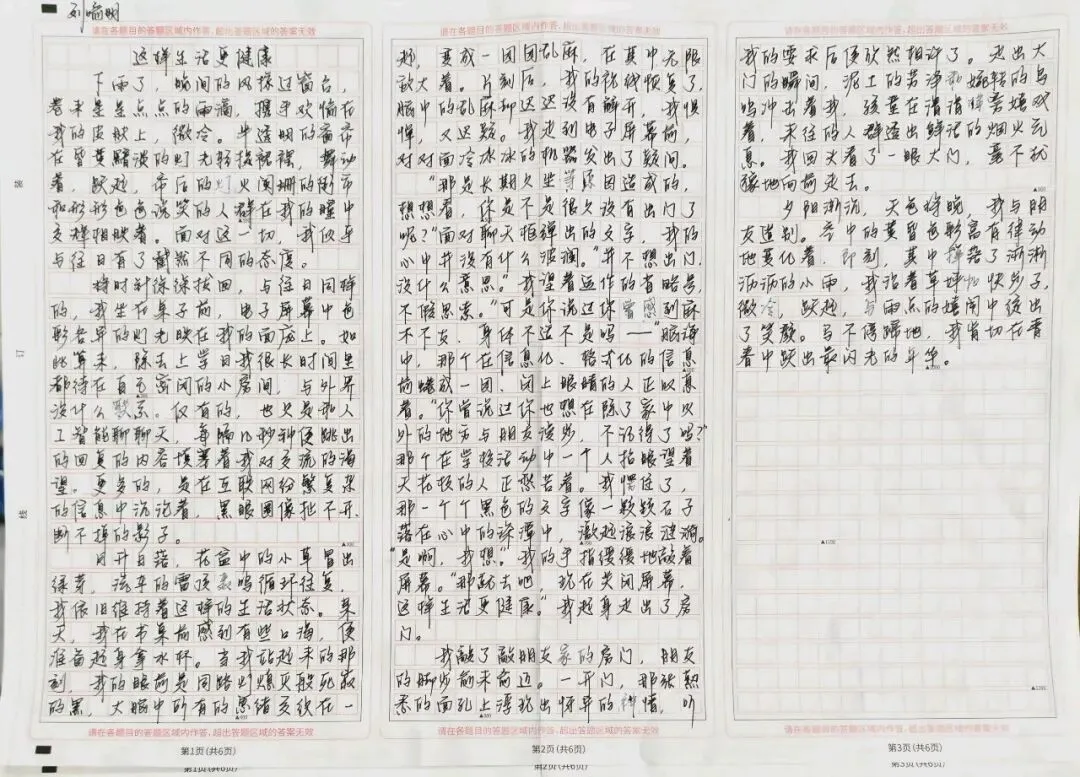 刘喻明
请在各题目的答题区域内作答,超出答题区域的答案无效
这样生活更健康
下雨了，瞬间的风掠过窗台，
卷来星星点点的雨滴，携手欢愉在
我的皮肤上，微冷。半透明的窗帘
在昏黄黯淡的灯光轻抚褶皱，舞动
着，跃起，帘后的灯火阑珊的街市
和形形色色说笑的人群在我的瞳中
交辉相映着。面对这一切，我似乎
与往日有了截然不同的态度。
将时针缓缓拨回，与往日同样
的，我坐在桌子前，电子屏幕中色
彩各异的灯光映在我的面庞上。如
此算来，除去上学日我很长时间里
都待在自己密闭的小房间，与外界
没什么联系。仅有的，也只是和人
工智能聊聊天，每隔几秒种便跳出
的回复的内容填塞着我对交流的渴
望。更多的，是在互联网纷繁复杂
的信息中沉沦着，黑眼圈像扯不开、
断不掉的影子。
月升日落，花盆中的小草冒出
绿芽，汽车的雷顶轰鸣循环往复，
我依旧维持着这样的生活状态。某
天，我在书桌前感到有些口渴，便
准备起身拿水杯。当我站起来的那
刻，我的眼前是同路灯熄灭般死寂
的黑，大脑中所有的思绪交织在一
请在各题目的答题区域内作答,超出答题区域的答案无效
第1页(共6页)
请在各题目的答题区域内作答,超出答题区域的答案无效
起，变成一团团乱麻，在其中无限
放大着。片刻后，我的视线恢复了，
脑中的乱麻却迟迟没有解开，我惧
惮，又迟疑。我走到电子屏幕前，
对对面冷冰冰的机器发出了疑问。
“那是长期久坐等原因造成的，
想想看，你是不是很久没有出门了
呢？”面对聊天框弹出的文字，我的
心中并没有什么波澜。“并不想出门，
没什么意思。”我望着运作的省略号，
不假思索。“可是你说过你曾感到麻
木不友、身体不适不是吗——”脑海
中，那个在信息化、格式化的信息
前蜷成一团、闭上眼睛的人正叹息
着。“你曾说过你也想在除了家中以
外的地方与朋友漫步，不记得了吗？”
那个在学校活动中一个人抬眼望着
天花板的人正愁苦着。我愣住了，
那一个个黑色的文字像一颗颗石子
落在心中的深潭中，激起浪浪涟漪。
“是啊，我想”。我的手指缓缓地敲着
屏幕。“那就去吧，现在关闭屏幕，
这样生活更健康。”我起身走出了房
门。
我敲了敲朋友家的房门，朋友
的脚步前来前迈。一开门，那张熟
悉的面孔上浮现出惊异的神情，听
请在各题目的答题区域内作答,超出答题区域的答案无效
第2页(共6页)
请在各题目的答题区域内作答,超出答题区域的答案无效
我的要求后便欣然相许了。走出大
门的瞬间，泥土的芳泽和婉转的鸟
鸣冲击着我，孩童在清清嬉戏
着，来往的人群透出鲜活的烟火气
息。我回头看了一眼大门，毫不犹
豫地向前走去。
夕阳渐沉，天色将晚，我与朋
友道别。空中的黄昏色彩富有律动
地变化着，即刻，其中掉落了淅淅
沥沥的小雨，我沿着草坪加快步子，
微冷，跃起，与雨点的嬉闹中绽出
了笑颜。马不停蹄地，我肯切在青
春中跃出最闪光的斗争。
请在各题目的答题区域内作答,超出答题区域的答案无效
第3页(共6页)